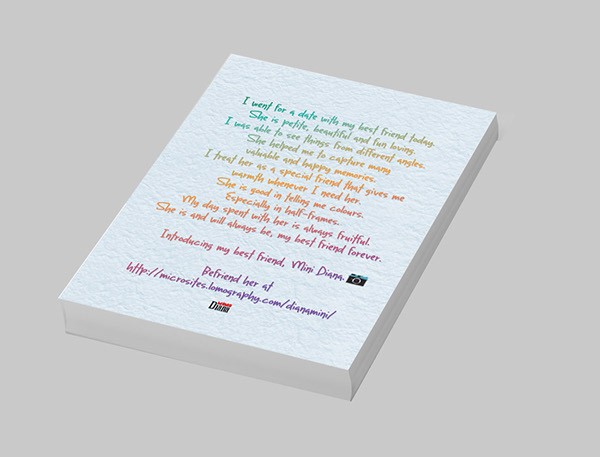 I went for a date with my best friend today.
She is petite, beautiful and fun loving.
I was able to see things from different angles.
She helped me to capture many
valuable and happy memories.
I treat her as a special friend that gives me
warmth whenever I need her.
She is good in telling me colours.
Especially in half-frames.
My day spent with her is always fruitful.
She is and will always be, my best friend forever.
Introducing my best friend, Mini Diana.
Befriend her at
http://microsites.lomography.com/dianamini/
Diana